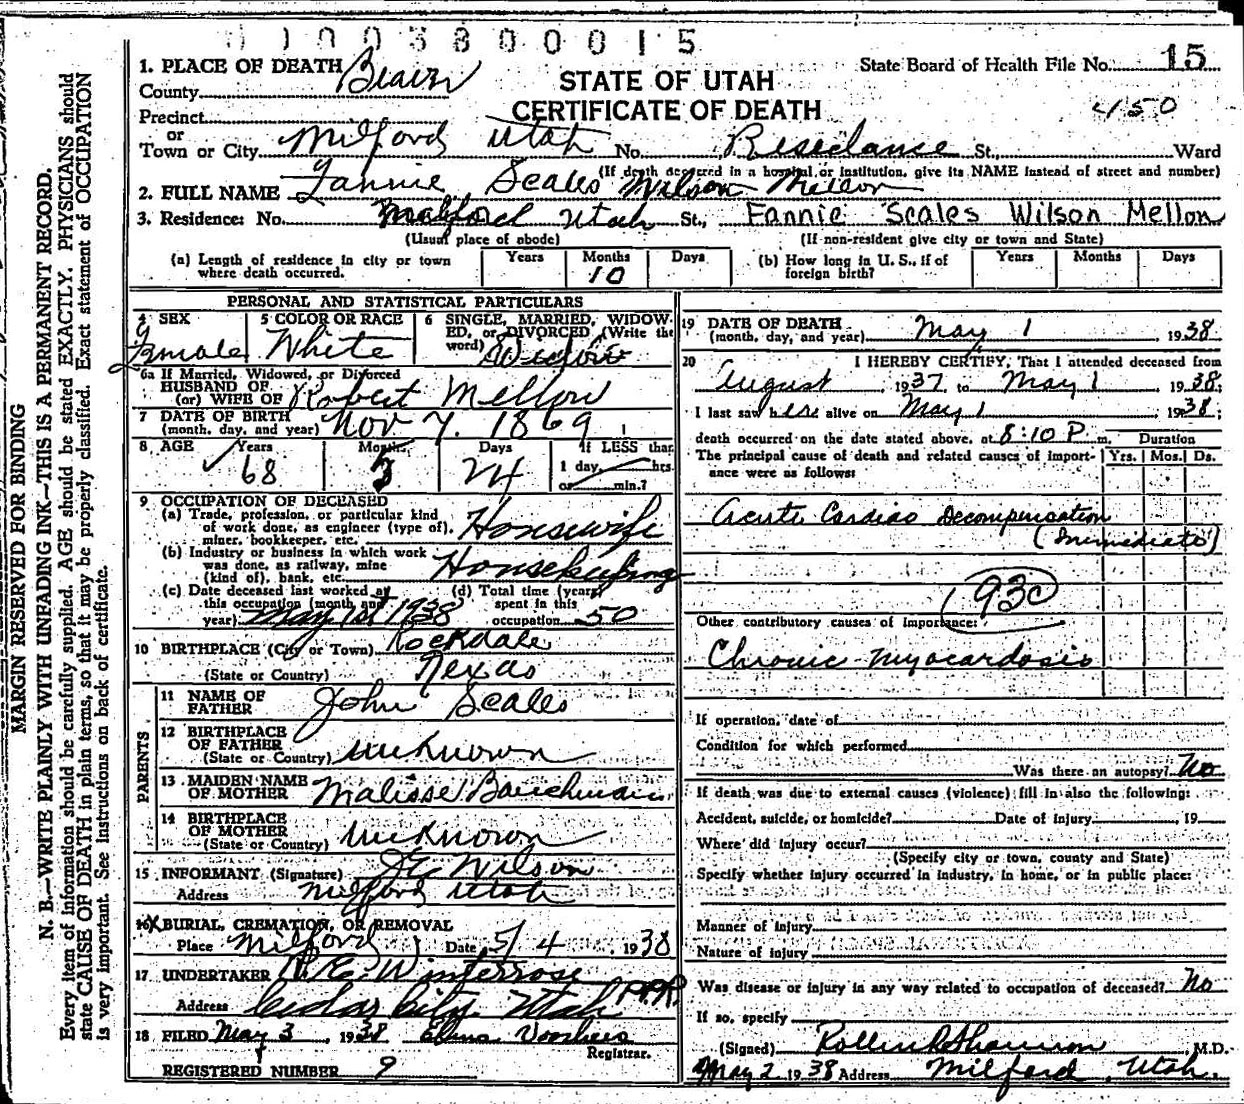 0 1 0 0 3 8 0 0 0 1 5
1. PLACE OF DEATH
County Beaver
STATE OF UTAH
CERTIFICATE OF DEATH
State Board of Health File No. 15
450
Precinct
or
Town or City Milford Utah No. Residance St., Ward
(If death occurred in a hospital or institution, give its NAME instead of street and number)
2. FULL NAME Fannie Scales Wilson Mellon
3. Residence: No. Milford Utah St., Fannie Scales Wilson Mellon
(Usual place of abode) (If non-resident give city or town and State)
(a) Length of residence in city or town where death occurred. Years Months 10 Days
(b) How long in U. S., if of foreign birth? Years Months Days
PERSONAL AND STATISTICAL PARTICULARS
4 SEX Female
5 COLOR OR RACE White
6 SINGLE, MARRIED, WIDOWED, or DIVORCED (Write the word) Widow
6a If Married, Widowed, or Divorced
HUSBAND OF
(or) WIFE OF Robert Mellon
7 DATE OF BIRTH
(month, day, and year) Nov 7. 1869
8 AGE Years 68 Months 5 Days 24 If LESS than
1 day, hrs.
or min.?
9 OCCUPATION OF DECEASED
(a) Trade, profession, or particular kind
of work done, as engineer (type of),
miner, bookkeeper, etc. Housewife
(b) Industry or business in which work
was done, as railway, mine
(kind of), bank, etc. Housekeeping
(c) Date deceased last worked at
this occupation (month and
year) May 1st 1938
(d) Total time (years)
spent in this
occupation 50
10 BIRTHPLACE (City or Town) Rockdale
(State or Country) Texas
PARENTS
11 NAME OF
FATHER John Scales
12 BIRTHPLACE
OF FATHER
(State or Country) unknown
13 MAIDEN NAME
OF MOTHER Malisse Bauchman
14 BIRTHPLACE
OF MOTHER
(State or Country) unknown
15 INFORMANT (Signature) J E Wilson
Address Milford Utah
16 BURIAL, CREMATION, OR REMOVAL
Place Milford Date 5/4 1938
17 UNDERTAKER Winterrose
Address Cedar City Utah
18 FILED May 3, 1938 Elma Voorhees
Registrar.
REGISTERED NUMBER 9
19 DATE OF DEATH
(month, day, and year) May 1 1938
20 I HEREBY CERTIFY, That I attended deceased from
August, 1937 to May 1, 1938;
I last saw her alive on May 1, 1938;
death occurred on the date stated above, at 8:10 P. m.
Duration
Yrs. Mos. Ds.
The principal cause of death and related causes of importance were as follows:
Acute Cardiac Decompensation
(Immediate)
93c
Other contributory causes of importance:
Chronic myocardosis
If operation, date of
Condition for which performed
Was there an autopsy? No
If death was due to external causes (violence) fill in also the following:
Accident, suicide, or homicide? Date of injury , 19
Where did injury occur?
(Specify city or town, county and State)
Specify whether injury occurred in industry, in home, or in public place:
Manner of injury
Nature of injury
Was disease or injury in any way related to occupation of deceased? No
If so, specify
(Signed) M.D.
May 2 1938 Address Milford, Utah.
MARGIN RESERVED FOR BINDING
N. B.—WRITE PLAINLY WITH UNFADING INK—THIS IS A PERMANENT RECORD.
Every item of information should be carefully supplied. AGE should be stated EXACTLY. PHYSICIANS should
state CAUSE OF DEATH in plain terms, so that it may be properly classified. Exact statement of OCCUPATION
is very important. See instructions on back of certificate.